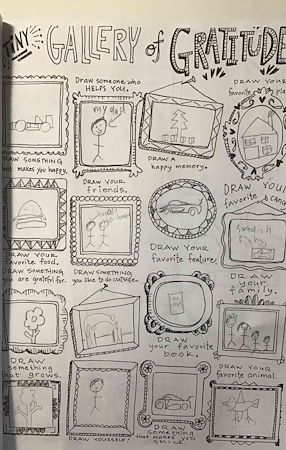 TINY GALLERY of GRATITUDE
DRAW SOMETHING
that makes you happy.
DRAW someone who
HELPS YOU.
my dad
DRAW A
happy memory.
DRAW YOUR
favorite
DRAW YOUR
favorite food.
DRAW YOUR
friends.
DRAW YOUR
favorite feature.
DRAW YOUR
favorite
Swedish
Fish
DRAW SOMETHING
you are grateful for.
DRAW SOMETHING
you like to do outside.
DRAW
your favorite
book.
DRAW
your
family.
DRAW
something
that grows.
DRAW YOURSELF!
DRAW
something
that makes you
SMILE.
DRAW YOUR
favorite animal.